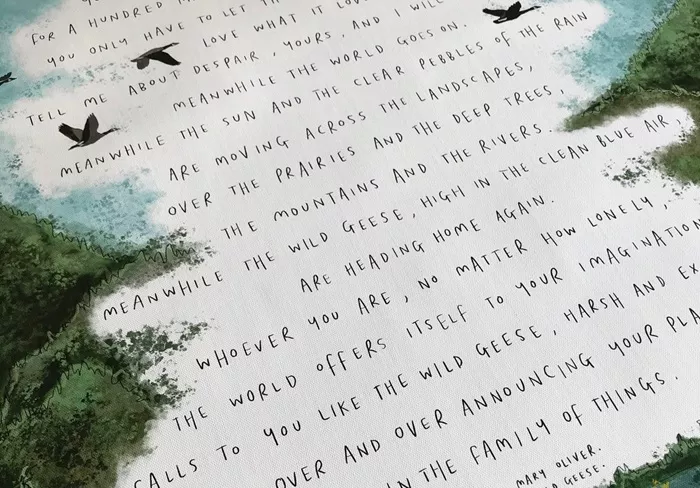 FOR A HUNDRED
YOU ONLY HAVE TO LET
LOVE WHAT IT
TELL ME ABOUT DESPAIR, YOURS, AND I WILL
MEANWHILE THE WORLD GOES ON.
MEANWHILE THE SUN AND THE CLEAR PEBBLES OF THE RAIN
ARE MOVING ACROSS THE LANDSCAPES,
OVER THE PRAIRIES AND THE DEEP TREES,
THE MOUNTAINS AND THE RIVERS.
MEANWHILE THE WILD GEESE, HIGH IN THE CLEAN BLUE AIR,
ARE HEADING HOME AGAIN.
WHOEVER YOU ARE, NO MATTER HOW LONELY,
THE WORLD OFFERS ITSELF TO YOUR IMAGINATION
CALLS TO YOU LIKE THE WILD GEESE, HARSH AND EX
OVER AND OVER ANNOUNCING YOUR PLA
IN THE FAMILY OF THINGS.
MARY OLIVER.
GEESE.